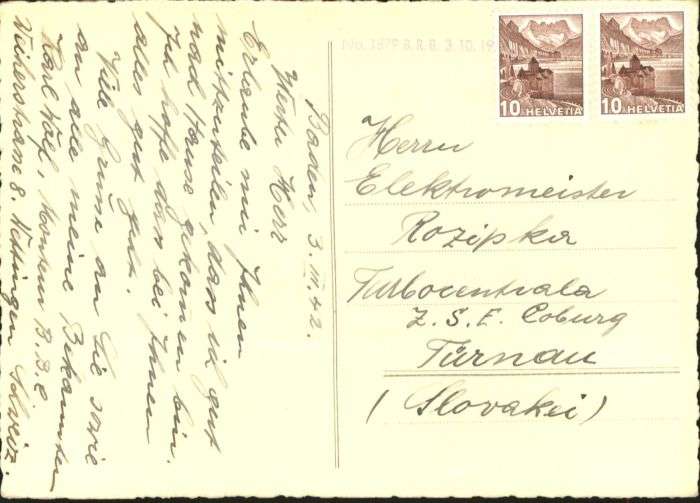 Baden, 3. III. 42.
Werter Herr
Erlaube mir Ihnen
mitzuteilen, dass ich gut
nach Hause gekomen bin.
Ich hofe dass bei Ihnen
alles gut geht.
Viele Grüsse an Sie sowie
an alle meine Bekannten
Karl Monteur B.B.C
8. Wettingen Schweiz.
No. 3879 B.R.B. 3.10.19
10 HELVETIA
10 HELVETIA
Herrn
Elektromeister
Rozipka
Turbocentrala
Z.S.E. Coburg
Türnau
(Slovakei)